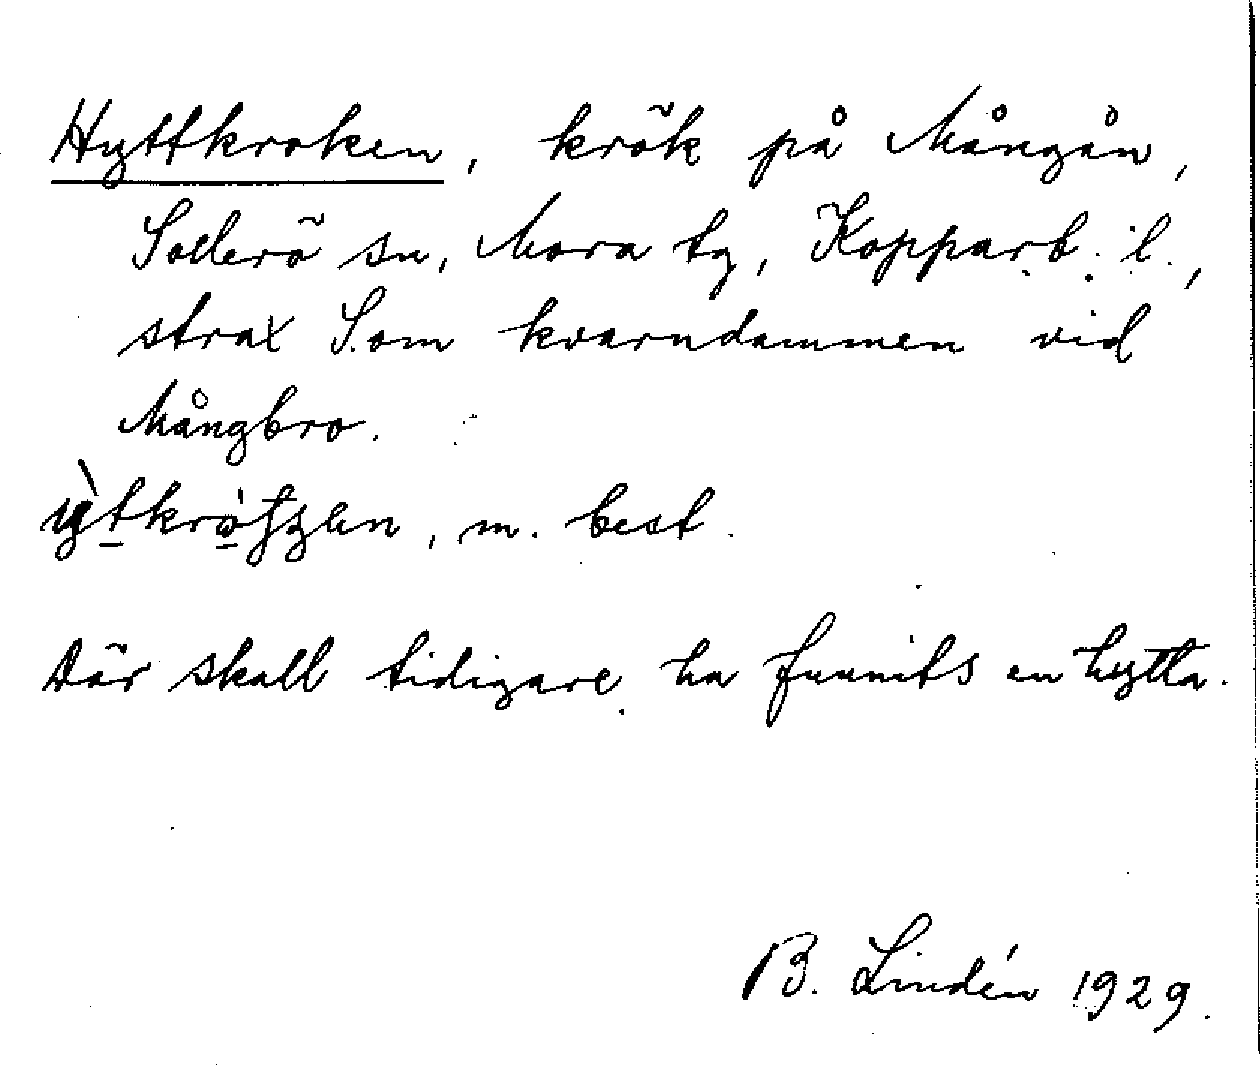 Hyttkroken, krök på Mångån,
Sollerö sn, Mora tg, Kopparb. l.,
strax S.om kvarndammen vid
Mångbro.
m. best.
Där skall tidigare ha funnits en hytta.
B. Lindén 1929.